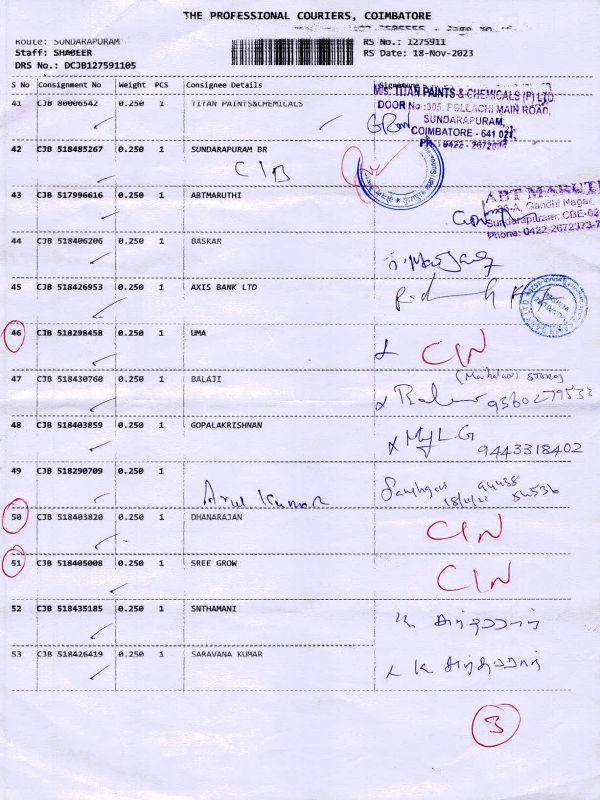 THE PROFESSIONAL COURIERS, COIMBATORE
Route: SUNDARAPURAM
RS No.: 1275911
Staff: SHABEER
RS Date: 18-Nov-2023
DRS No.: DCJB127591105
S No Consignment No Weight PCS Consignee Details Signature
M/s. TITAN PAINTS & CHEMICALS (P) LTD
DOOR No :305, POLLACHI MAIN ROAD,
SUNDARAPURAM,
COIMBATORE - 641 024
41 CJB 80006542 0.250 1 TITAN PAINTS&CHEMICALS
42 CJB 518485267 0.250 1 SUNDARAPURAM BR
CIB
43 CJB 517996616 0.250 1 ABTMARUTHI
ABT MARUTI
Gandhi Nagar,
Sundarapuram, CBE-02
Phone: 0422-2672373-7
44 CJB 518406206 0.250 1 BASKAR
45 CJB 518426953 0.250 1 AXIS BANK LTD
46 CJB 518298458 0.250 1 UMA
CIN
47 CJB 518430760 0.250 1 BALAJI
48 CJB 518403859 0.250 1 GOPALAKRISHNAN
9443318402
49 CJB 518290709 0.250 1
Arul Kumar
50 CJB 518403820 0.250 1 DHANARAJAN
CIN
51 CJB 518405008 0.250 1 SREE GROW
CIN
52 CJB 518435185 0.250 1 SNTHAMANI
53 CJB 518426419 0.250 1 SARAVANA KUMAR
3